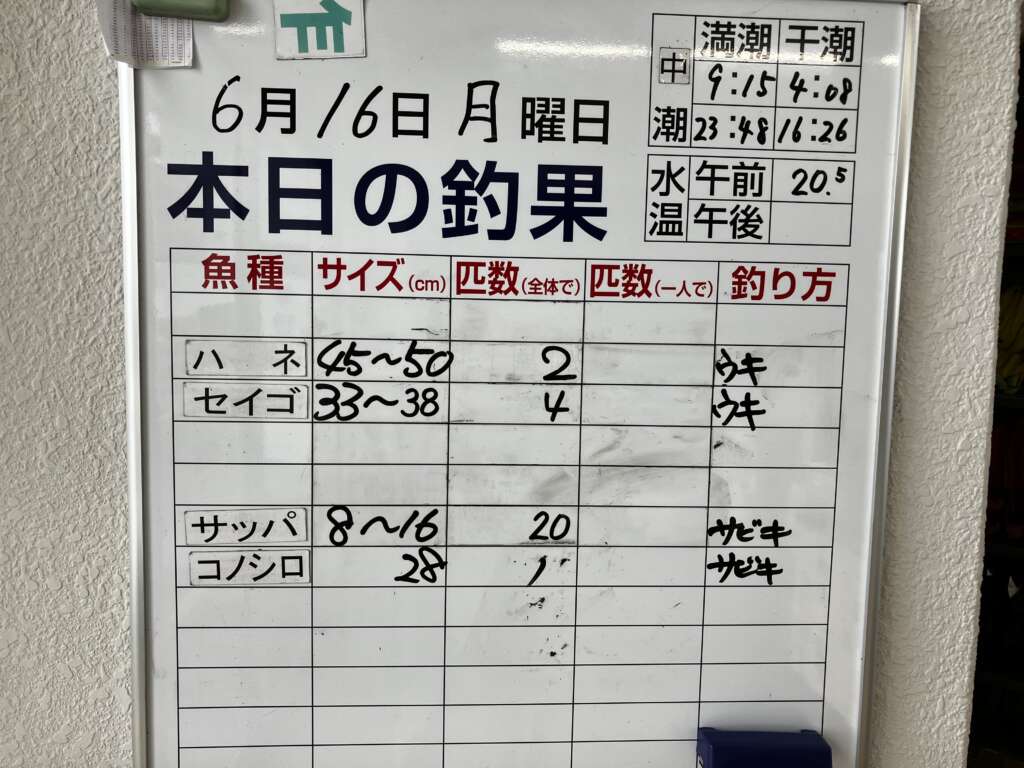 作
満潮 干潮
中潮 9:15 4:08
23:48 16:26
6月16日月曜日
水温 午前 20.5
午後
本日の釣果
魚種 サイズ(cm) 匹数(全体で) 匹数(一人で) 釣り方
ハネ 45~50 2 ウキ
セイゴ 33~38 4 ウキ
サッパ 8~16 20 サビキ
コノシロ 28 1 サビキ